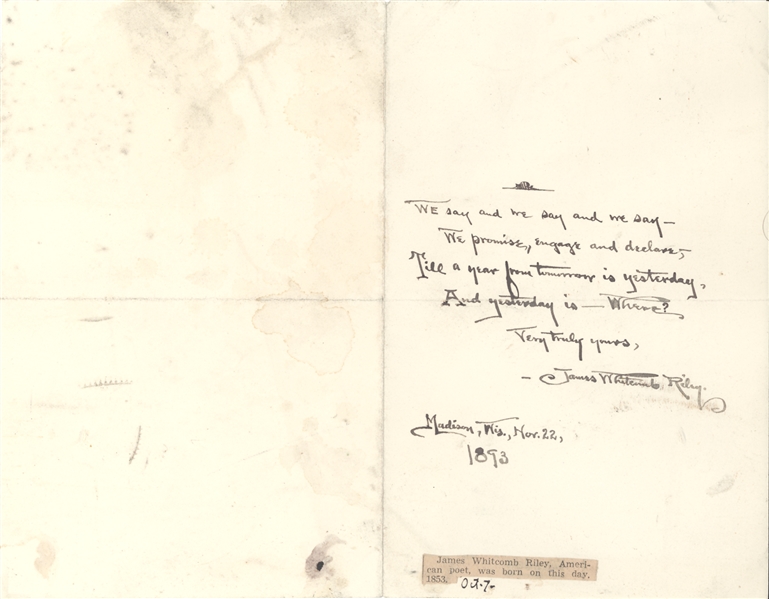 We say and we say and we say—
We promise, engage and declare,—
Till a year from tomorrow is yesterday,
And yesterday is — Where?
Very truly yours,
— James Whitcomb Riley.
Madison, Wis., Nov. 22,
1893
James Whitcomb Riley, Ameri-
can poet, was born on this day,
1853. Oct-7-